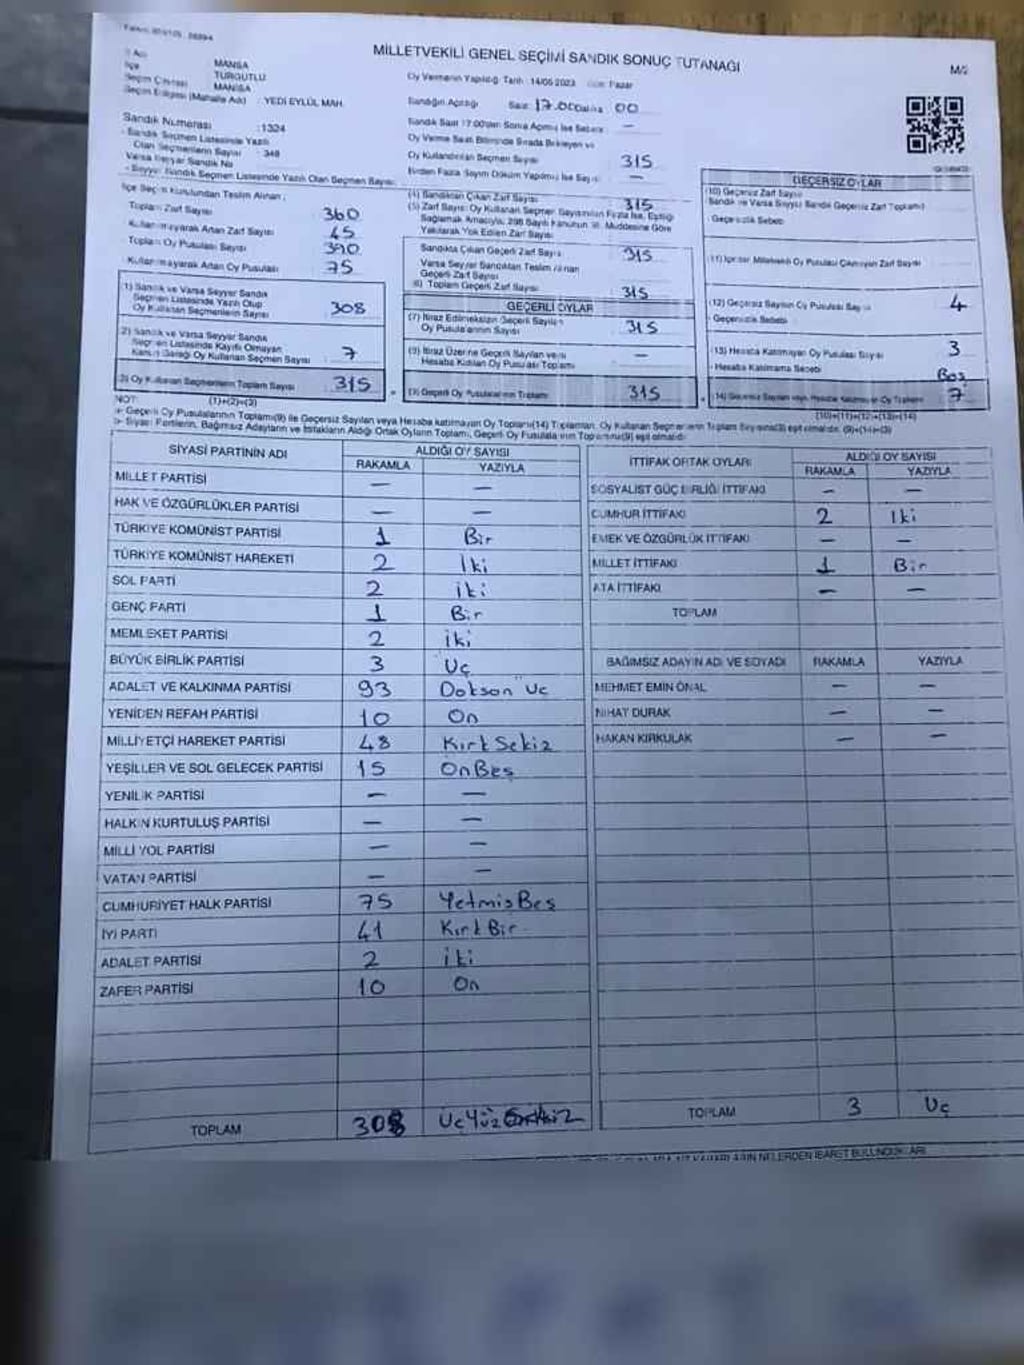 MİLLETVEKİLİ GENEL SEÇİMİ SANDIK SONUÇ TUTANAĞI
M/2
İli Adı MANİSA
İlçe TURGUTLU
Seçim Çevresi MANİSA
Seçim Bölgesi (Mahalle Adı) : YEDİ EYLÜL MAH.
Oy Vermenin Yapıldığı Tarih : 14/05/2023 Gün: Pazar
Sandığın Açıldığı Saat: 17.00 Dakika 00
Sandık Saat 17:00'den Sonra Açılmış İse Sebebi —
Sandık Numarası : 1324
- Sandık Seçmen Listesinde Yazılı
Olan Seçmenlerin Sayısı : 348
Varsa Seyyar Sandık No
- Seyyar Sandık Seçmen Listesinde Yazılı Olan Seçmen Sayısı
Oy Verme Saati Bitiminde Sırada Bekleyen ve
Oy Kullandırılan Seçmen Sayısı 315
Birden Fazla Sayım Döküm Yapılmış İse Sayısı —
İlçe Seçim Kurulundan Teslim Alınan ;
Toplam Zarf Sayısı 360
Kullanılmayarak Artan Zarf Sayısı 45
Toplam Oy Pusulası Sayısı 390
Kullanılmayarak Artan Oy Pusulası 75
(1) Sandık ve Varsa Seyyar Sandık
Seçmen Listesinde Yazılı Olup
Oy Kullanan Seçmenlerin Sayısı 308
2) Sandık ve Varsa Seyyar Sandık
Seçmen Listesinde Kayıtlı Olmayan
Kanun Gereği Oy Kullanan Seçmen Sayısı 7
(3) Oy Kullanan Seçmenlerin Toplam Sayısı 315
(1)+(2)=(3)
(4) Sandıktan Çıkan Zarf Sayısı 315
(5) Zarf Sayısı Oy Kullanan Seçmen Sayısından Fazla İse, Eşitliği
Sağlamak Amacıyla, 298 Sayılı Kanunun 98. Maddesine Göre
Yakılarak Yok Edilen Zarf Sayısı
Sandıkta Çıkan Geçerli Zarf Sayısı 315
Varsa Seyyar Sandıktan Teslim Alınan
Geçerli Zarf Sayısı
6) Toplam Geçerli Zarf Sayısı 315
GEÇERLİ OYLAR
(7) İtiraz Edilmeksizin Geçerli Sayılan
Oy Pusulalarının Sayısı 315
(8) İtiraz Üzerine Geçerli Sayılan ve/ve
Hesaba Katılan Oy Pusulası Toplamı —
(9) Geçerli Oy Pusulalarının Toplamı 315
GEÇERSİZ OYLAR
(10) Geçersiz Zarf Sayısı
Sandık ve Varsa Seyyar Sandık Geçersiz Zarf Toplamı)
- Geçersizlik Sebebi
(11) İçinden Milletvekili Oy Pusulası Çıkmayan Zarf Sayısı
(12) Geçersiz Sayılan Oy Pusulası Sayısı 4
- Geçersizlik Sebebi
(13) Hesaba Katılmayan Oy Pusulası Sayısı 3
- Hesaba Katılmama Sebebi Boş
(14) Geçersiz Sayılan veya Hesaba Katılmayan Oy Toplamı 7
(10)+(11)+(12)+(13)=(14)
NOT:
- Geçerli Oy Pusulalarının Toplamı(9) ile Geçersiz Sayılan veya Hesaba katılmayan Oy Toplamı(14) Toplamları, Oy Kullanan Seçmenlerin Toplam Sayısına(3) eşit olmalıdır. (9)+(14)=(3)
- Siyasi Partilerin, Bağımsız Adayların ve İttifakların Aldığı Ortak Oyların Toplamı, Geçerli Oy Pusulalarının Toplamına(9) eşit olmalıdır
SİYASİ PARTİNİN ADI ALDIĞI OY SAYISI
RAKAMLA YAZIYLA
MİLLET PARTİSİ — —
HAK VE ÖZGÜRLÜKLER PARTİSİ — —
TÜRKİYE KOMÜNİST PARTİSİ 1 Bir
TÜRKİYE KOMÜNİST HAREKETİ 2 İki
SOL PARTİ 2 iki
GENÇ PARTİ 1 Bir
MEMLEKET PARTİSİ 2 iki
BÜYÜK BİRLİK PARTİSİ 3 Üç
ADALET VE KALKINMA PARTİSİ 93 Doksan Üç
YENİDEN REFAH PARTİSİ 10 On
MİLLİYETÇİ HAREKET PARTİSİ 48 Kırk Sekiz
YEŞİLLER VE SOL GELECEK PARTİSİ 15 OnBeş
YENİLİK PARTİSİ — —
HALKIN KURTULUŞ PARTİSİ — —
MİLLİ YOL PARTİSİ — —
VATAN PARTİSİ — —
CUMHURİYET HALK PARTİSİ 75 YetmişBeş
İYİ PARTİ 41 Kırk Bir
ADALET PARTİSİ 2 iki
ZAFER PARTİSİ 10 On
TOPLAM 308 Üç Yüz
İTTİFAK ORTAK OYLARI ALDIĞI OY SAYISI
RAKAMLA YAZIYLA
SOSYALİST GÜÇ BİRLİĞİ İTTİFAKI — —
CUMHUR İTTİFAKI 2 İki
EMEK VE ÖZGÜRLÜK İTTİFAKI — —
MİLLET İTTİFAKI 1 Bir
ATA İTTİFAKI — —
TOPLAM
BAĞIMSIZ ADAYIN ADI VE SOYADI RAKAMLA YAZIYLA
MEHMET EMİN ÖNAL — —
NİHAT DURAK — —
HAKAN KIRKULAK — —
TOPLAM 3 Üç